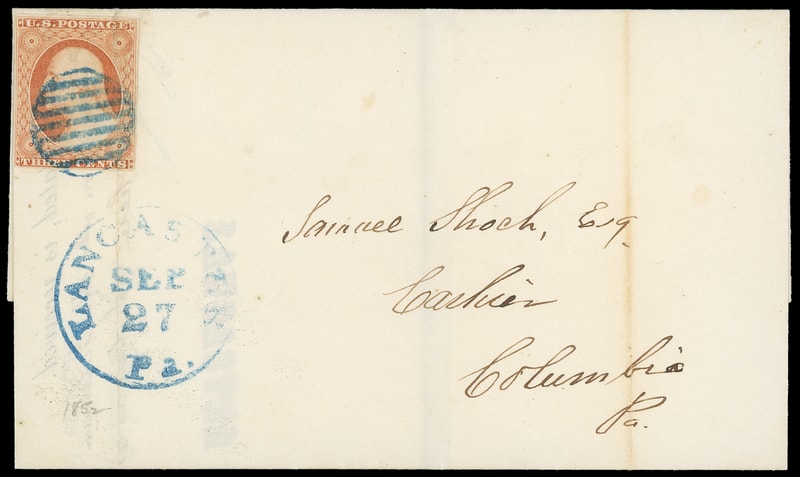 U.S. POSTAGE
THREE CENTS
LANCASTER
SEP
27
Pa.
1852
Samuel Shoch, Esq.
Cashier
Columbia
Pa.